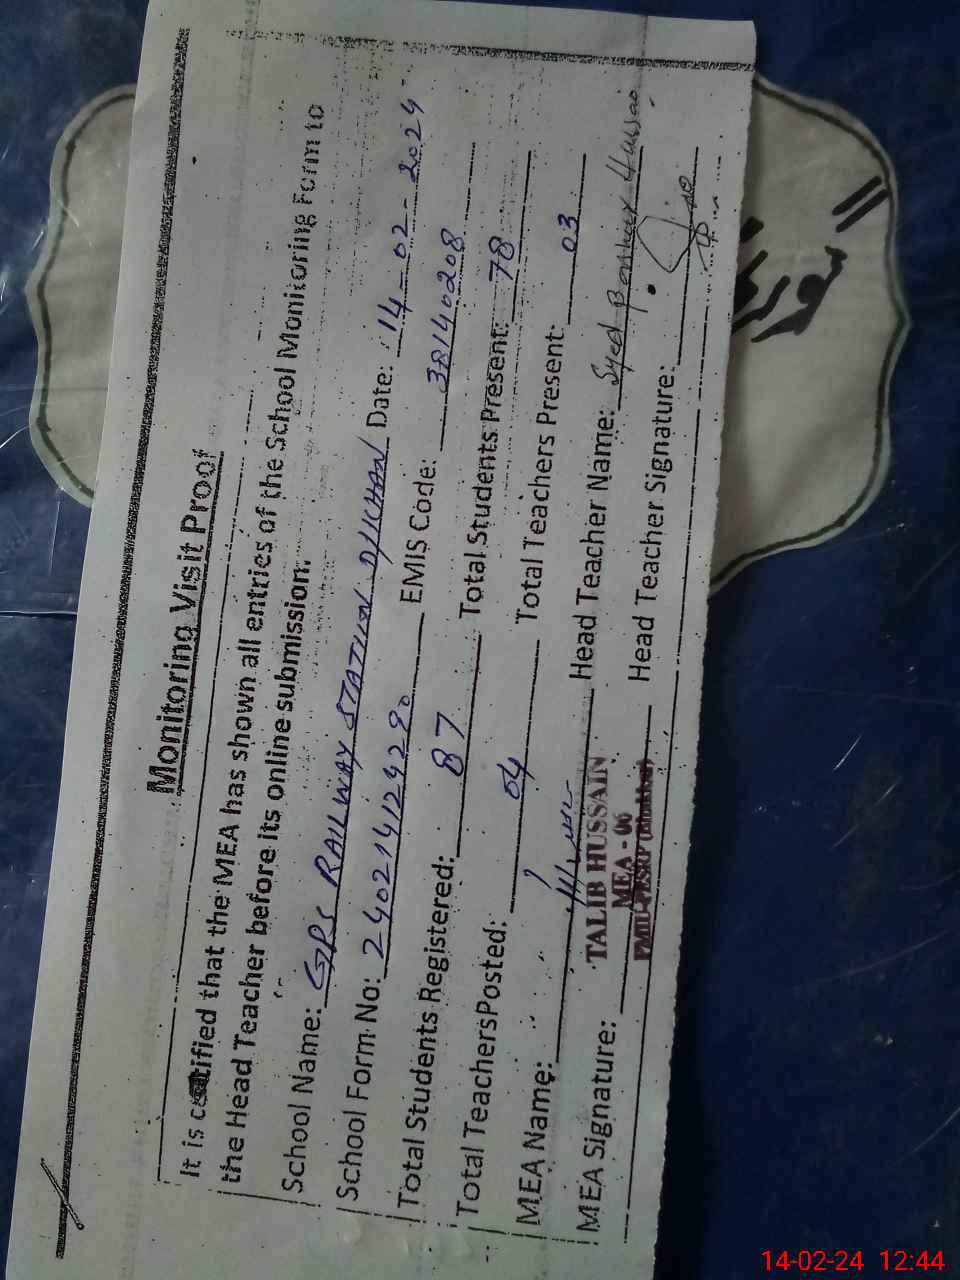 Monitoring Visit Proof
It is certified that the MEA has shown all entries of the School Monitoring Form to
the Head Teacher before its online submission.
School Name: GPS RAILWAY STATION D/KHAN Date: 14-02-2024
School Form No: 24021412429290 EMIS Code: 38140208
Total Students Registered: 87 Total Students Present: 78
Total TeachersPosted: 04 Total Teachers Present: 03
MEA Name: Head Teacher Name: Syed
TALIB HUSSAIN
MEA - 06
MEA Signature: Head Teacher Signature:
14-02-24 12:44